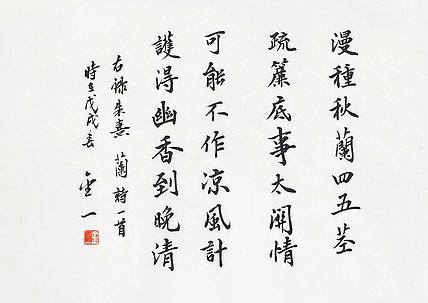 漫種秋蘭四五莖
疏簾底事太關情
可能不作凉風計
護得幽香到晚清
右錄朱熹蘭詩一首
時在戊戌春
金一